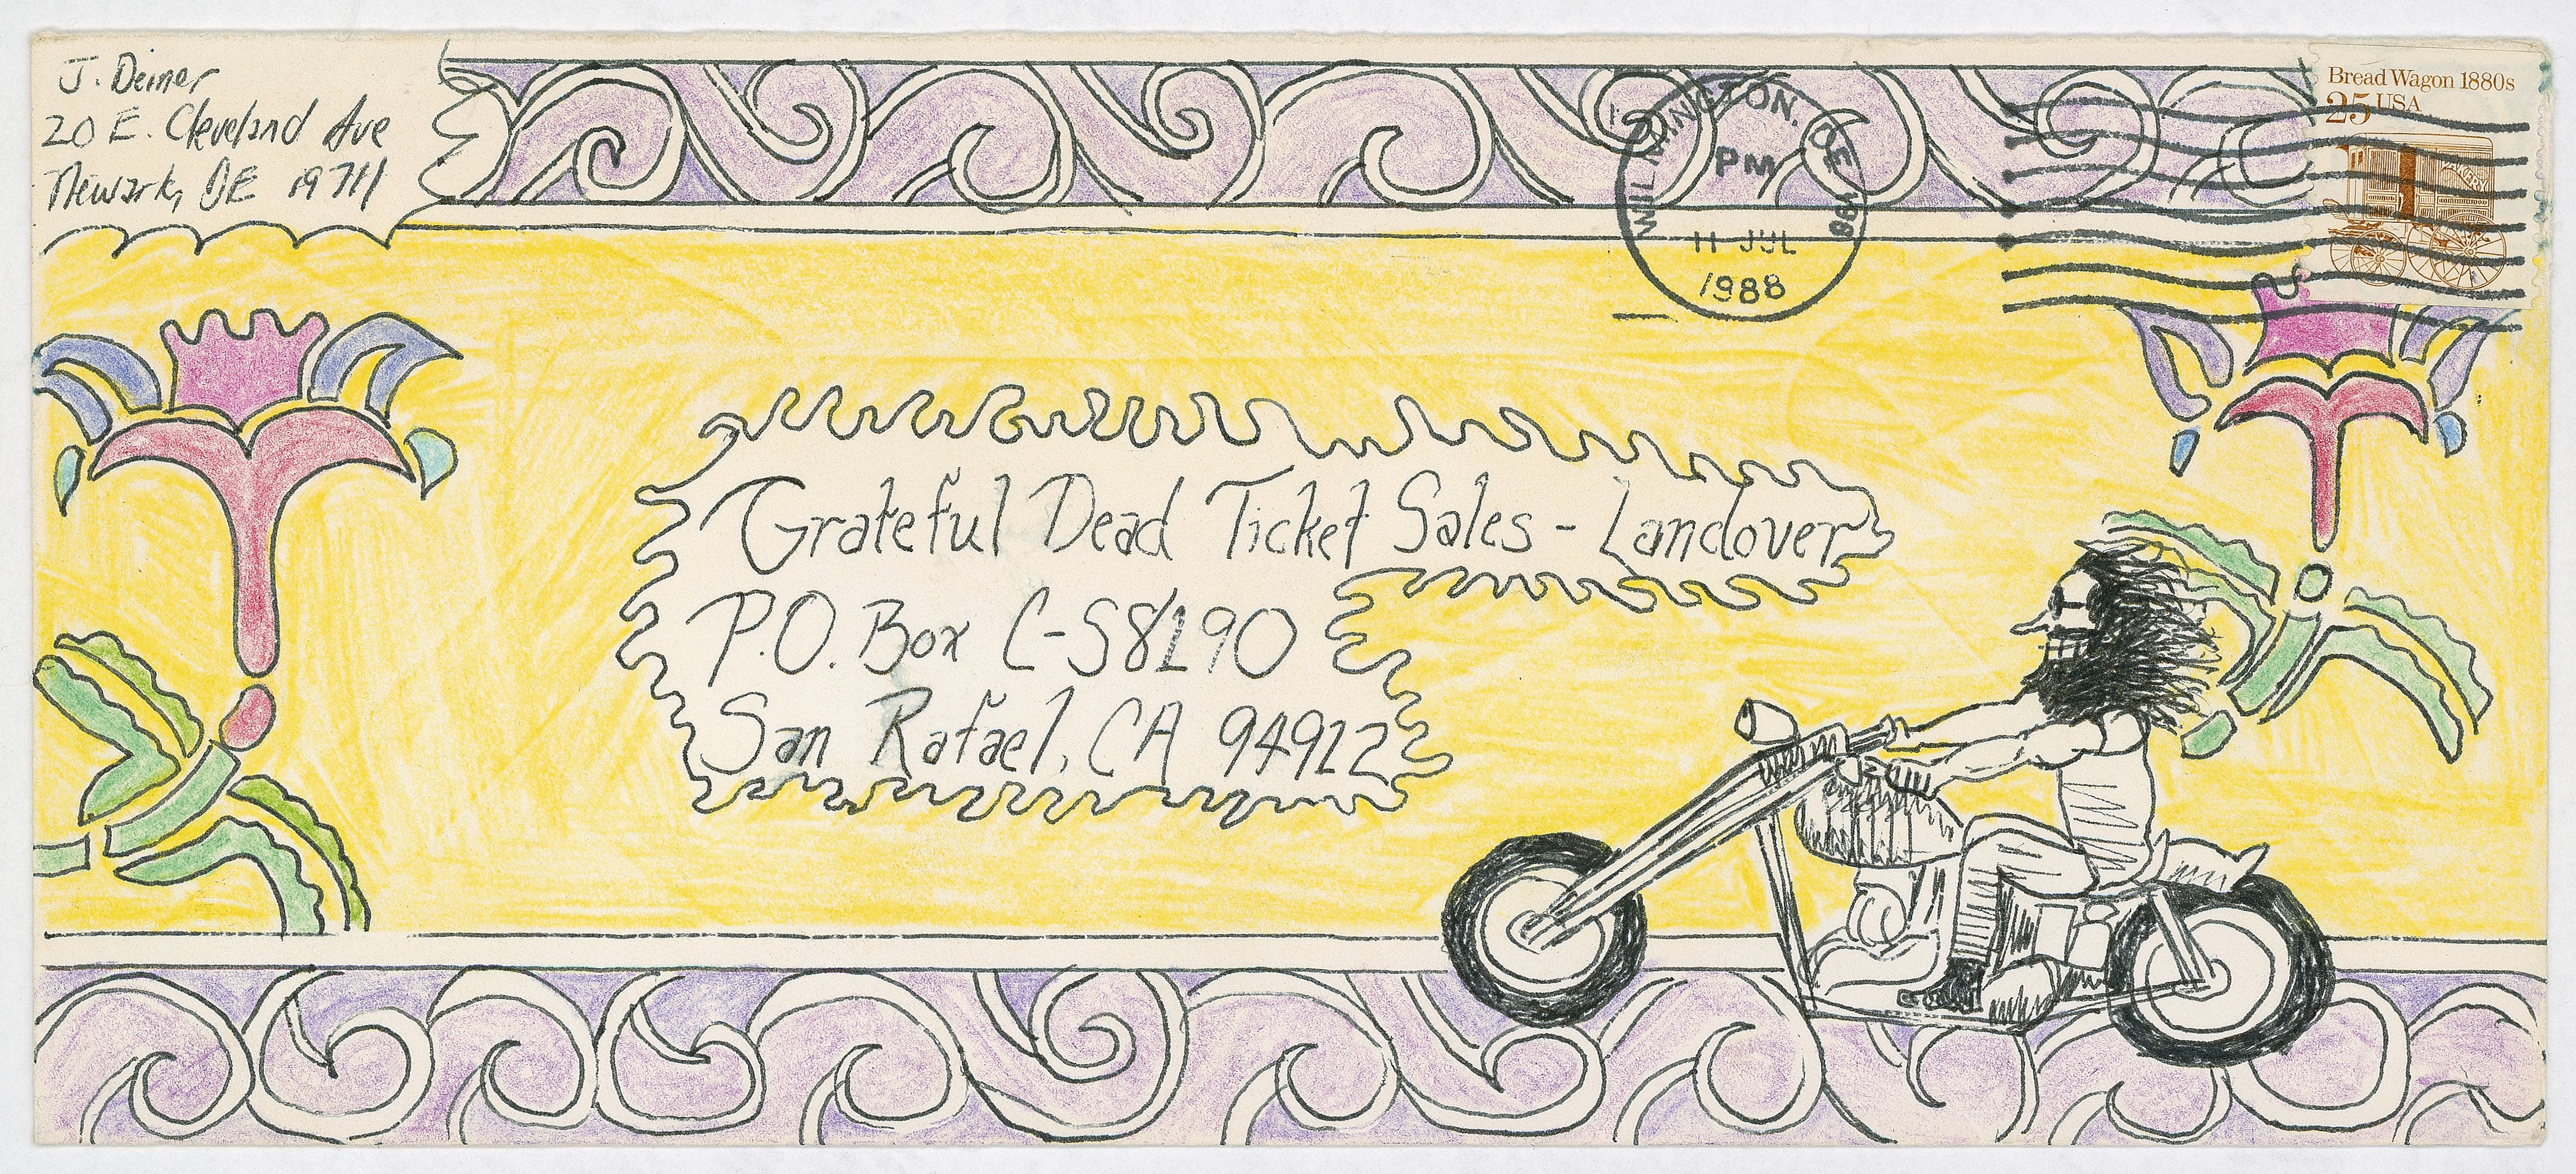 J. Deiner
20 E. Cleveland Ave
Newark, DE 19711
WILMINGTON, DE 198
PM
11 JUL
1988
Bread Wagon 1880s
25 USA
BAKERY
Grateful Dead Ticket Sales - Landover
P.O. Box C-S8190
San Rafael, CA 94912